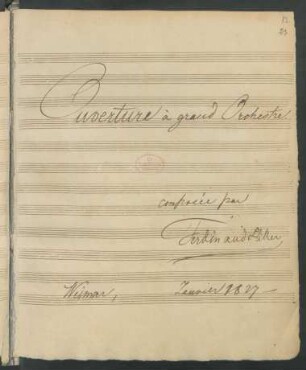 12.
Ouverture à grand Orchestre
composée par
Ferdinand Hiller
Weimar, Janvier 1827